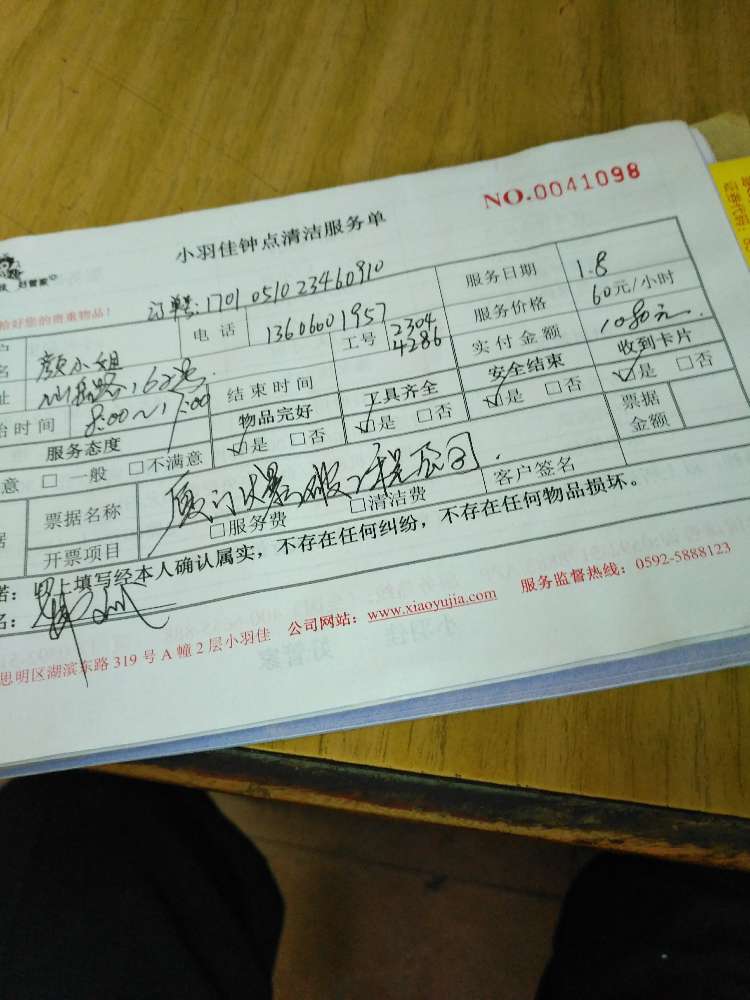 NO.0041098
小羽佳钟点清洁服务单
好管家
恰好您的贵重物品!
订单:1701051023460910
名 颜小姐 电话 13606001957 工号 2304 4286 服务日期 1.8
服务价格 60元/小时
址 162号 结束时间 实付金额 1080元
始时间 8:00~17:00 物品完好 工具齐全 安全结束 收到卡片
服务态度 是 □否 是 □否 是 □否 是 □否
意 □ 一般 □不满意 票据金额
票据名称 厦门爆破工程公司 客户签名
开票项目 □服务费 □清洁费
诺: 以上填写经本人确认属实,不存在任何纠纷,不存在任何物品损坏。
名:
思明区湖滨东路 319 号 A 幢 2 层小羽佳 公司网站:www.xiaoyujia.com 服务监督热线:0592-5888123